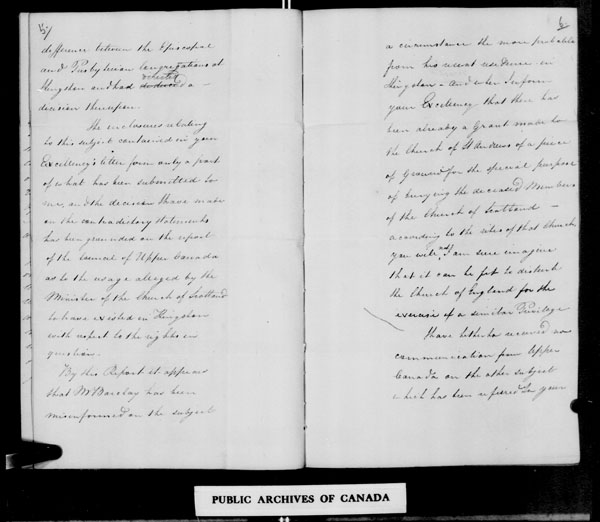 5/
difference between the Episcopal
and Presbyterian Congregations at
Kingston and had directed a
decision thereupon.
The enclosures relating
to this subject contained in your
Excellency's letter form only a part
of what has been submitted to
me, and the decision I have made
on the contradictory statements
has been grounded on the report
of the Council of Upper Canada
as to the usage alleged by the
Minister of the Church of Scotland
to have existed in Kingston
with respect to the rights in
question.
By this Report it appears
that Mr Barclay has been
misinformed on the subject
6
a circumstance the more probable
from his recent residence in
Kingston - and when I inform
your Excellency that there has
been already a Grant made to
the Church of St Andrews of a piece
of Ground for the special purpose
of burying the deceased Members
of the Church of Scotland -
according to the rites of that Church,
you will not I am sure imagine
that it can be fit to disturb
the Church of England for the
exercise of a similar Privilege
I have hitherto received no
communication from Upper
Canada on the other subject
which has been referred to your
PUBLIC ARCHIVES OF CANADA